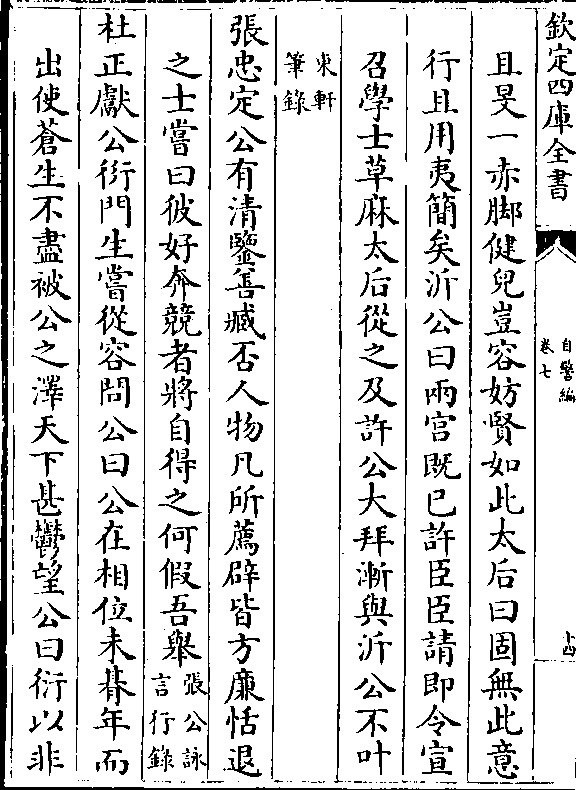 欽定四庫全書
自警編
卷七
十四
且旻一赤脚健兒豈容妨賢如此太后曰固無此意
行且用夷簡矣沂公曰兩宫既已許臣臣請即令宣
召學士草麻太后從之及許公大拜漸與沂公不叶
東軒
筆錄
張忠定公有清鑒善臧否人物凡所薦辟皆方廉恬退
之士嘗曰彼好奔競者將自得之何假吾舉張公詠
言行錄
杜正獻公衍門生嘗從容問公曰公在相位未朞年而
出使蒼生不盡被公之澤天下甚鬱望公曰衍以非